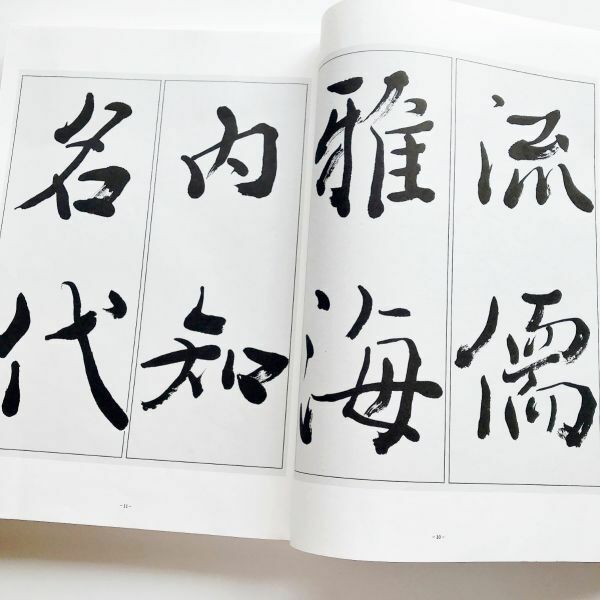 流儒
雅海
内知
名代
- 10 -
- 11 -